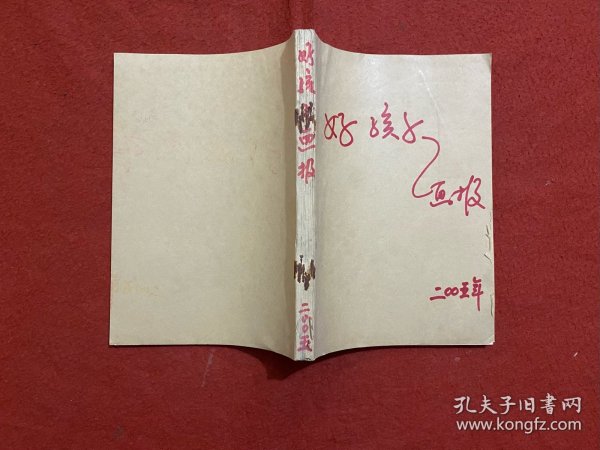 好孩子画报
二〇〇五
好孩子
画报
二〇〇五年
孔夫子旧书网
www.kongfz.com